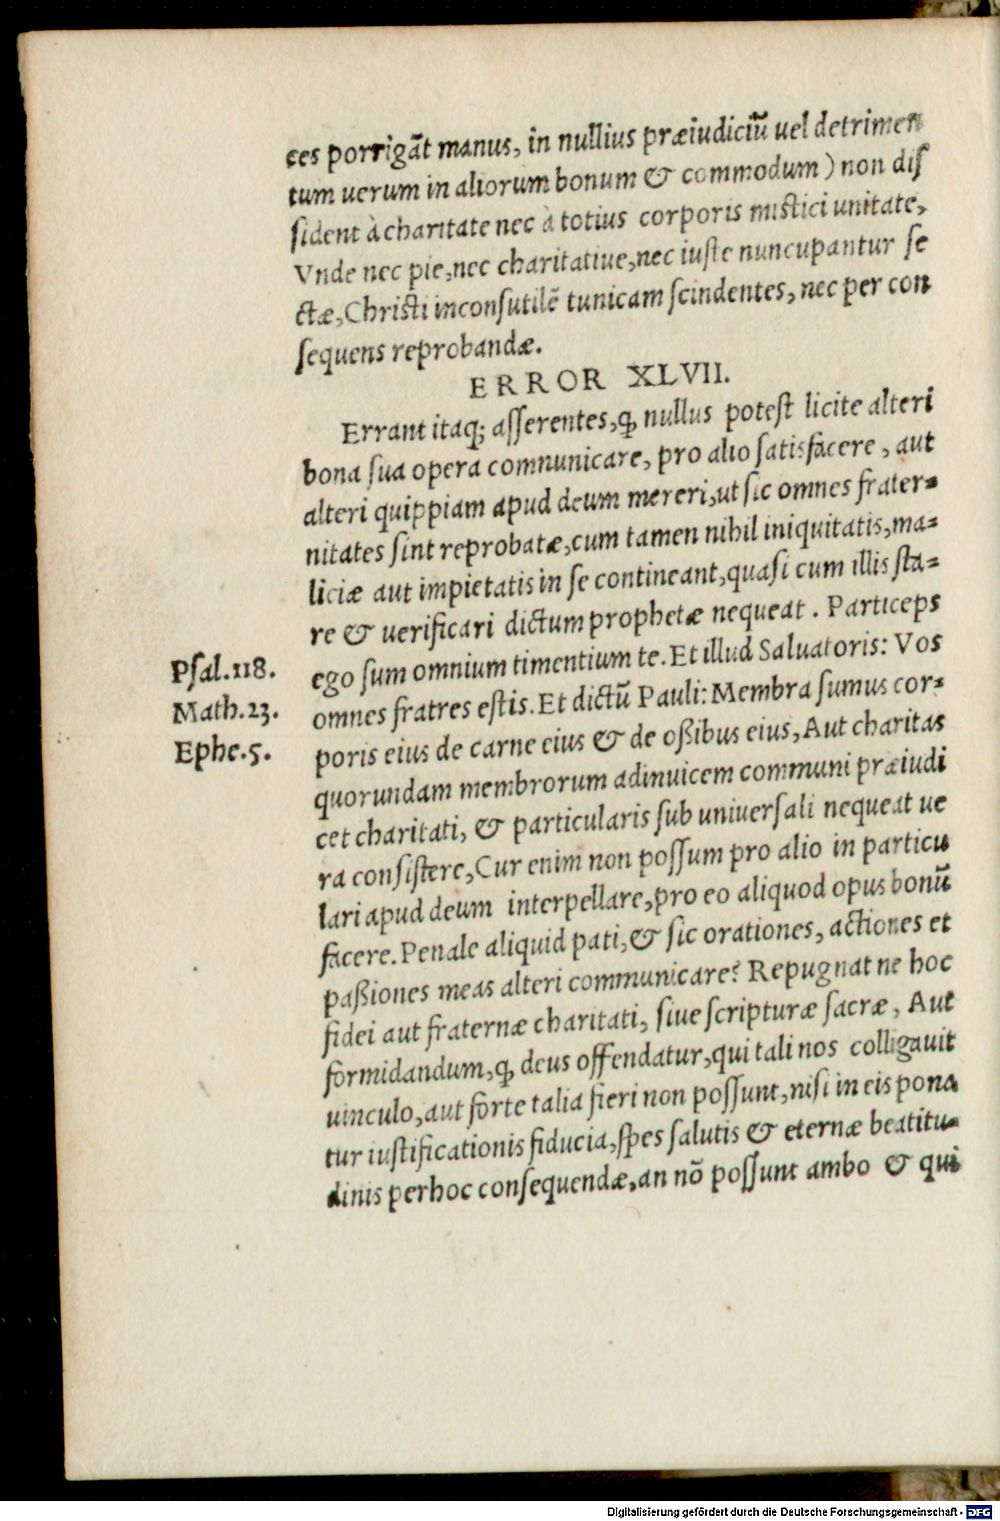 ces porrigãt manus, in nullius præiudiciũ uel detrimen
tum uerum in aliorum bonum & commodum) non dis
ſident à charitate nec à totius corporis mistici unitate,
Vnde nec pie, nec charitatiue, nec iuſte nuncupantur ſe
ctæ, Christi inconſutilẽ tunicam ſcindentes, nec per con
ſequens reprobandæ.
ERROR XLVII.
Errant itaq; aſſerentes, ꝙ nullus poteſt licite alteri
bona ſua opera communicare, pro alio ſatisfacere, aut
alteri quippiam apud deum mereri, ut ſic omnes frater-
nitates ſint reprobatæ, cum tamen nihil iniquitatis, ma-
liciæ aut impietatis in ſe contineant, quaſi cum illis ſta-
re & uerificari dictum prophetæ nequeat. Particeps
Pſal.118. ego ſum omnium timentium te. Et illud Saluatoris: Vos
Math.23. omnes fratres eſtis. Et dictũ Pauli: Membra ſumus cor-
Ephe.5. poris eius de carne eius & de oßibus eius, Aut charitas
quorundam membrorum adinuicem communi præiudi
cet charitati, & particularis ſub uniuerſali nequeat ue
ra conſiſtere, Cur enim non poſſum pro alio in particu
lari apud deum interpellare, pro eo aliquod opus bonũ
facere. Penale aliquid pati, & ſic orationes, actiones et
paßiones meas alteri communicare? Repugnat ne hoc
fidei aut fraternæ charitati, ſiue ſcripturæ ſacræ, Aut
formidandum, ꝙ deus offendatur, qui tali nos colligauit
uinculo, aut forte talia fieri non poſſunt, niſi in eis pona
tur iuſtificationis fiducia, ſpes ſalutis & eternæ beatitu-
dinis per hoc conſequendæ, an nõ poſſunt ambo & qui
Digitalisierung gefördert durch die Deutsche Forschungsgemeinschaft - DFG